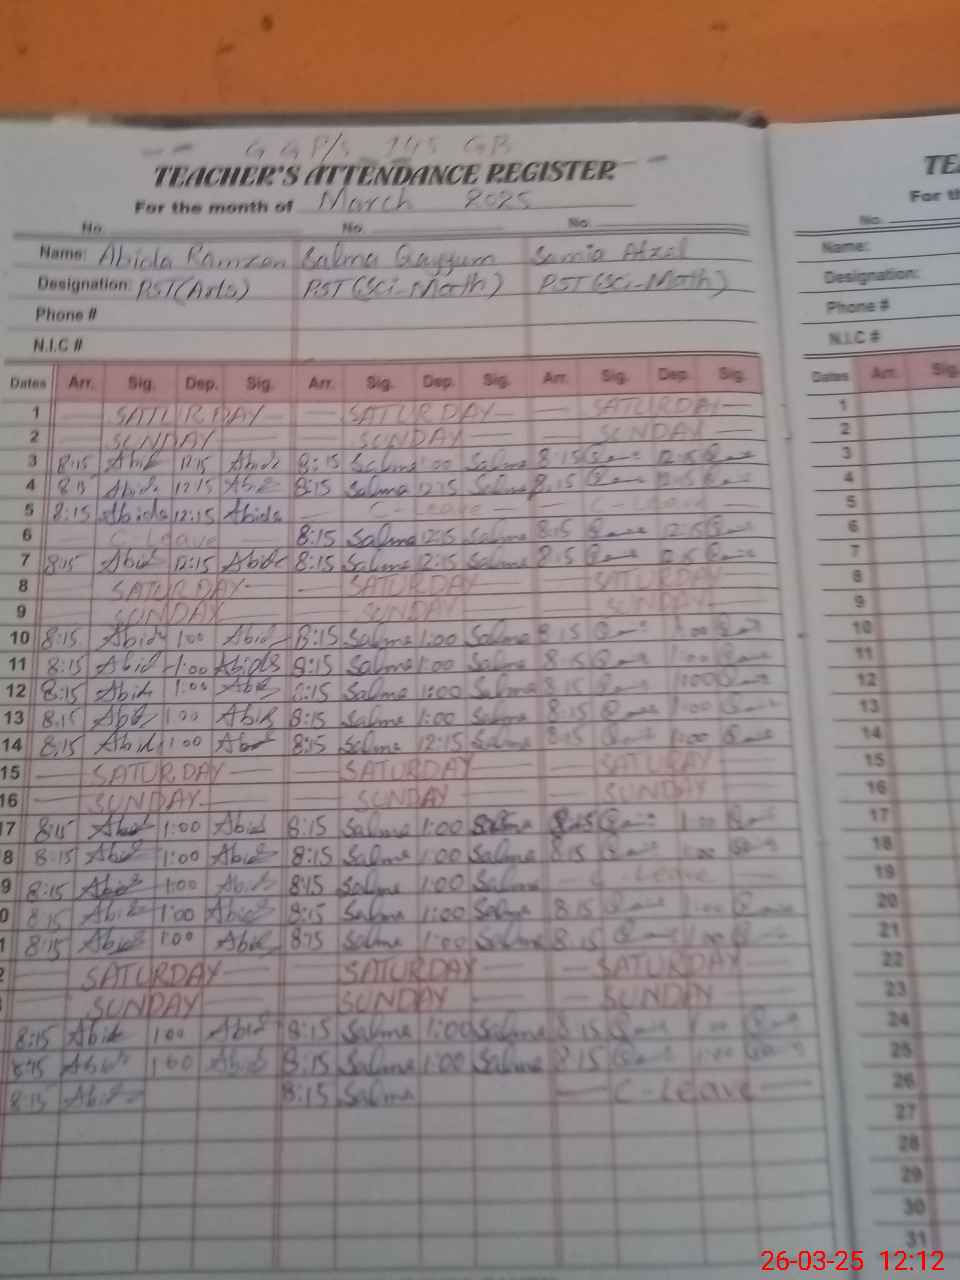 GGP/S 245 GB
TEACHER'S ATTENDANCE REGISTER
For the month of March 2025
No. No. No.
Name: Abida Ramzan Salma Qayyum Samia Afzal
Designation: PST(Arts) PST(Sci-Math) PST(Sci-Math)
Phone #
N.I.C #
Dates Arr. Sig. Dep. Sig. Arr. Sig. Dep. Sig. Arr. Sig. Dep. Sig.
1 SATURDAY SATURDAY SATURDAY
2 SUNDAY SUNDAY SUNDAY
3 8:15 Abida 12:15 Abida 8:15 Salma 1:00 Salma 8:15 12:15
4 8:15 Abida 12:15 Abida 8:15 Salma 12:15 Salma 8:15 12:15
5 8:15 Abida 12:15 Abida C-Leave C-Leave
6 C-Leave 8:15 Salma 12:15 Salma 8:15 12:15
7 8:15 Abida 12:15 Abida 8:15 Salma 12:15 Salma 8:15 12:15
8 SATURDAY SATURDAY SATURDAY
9 SUNDAY SUNDAY SUNDAY
10 8:15 Abida 1:00 Abida 8:15 Salma 1:00 Salma 8:15 1:00
11 8:15 Abida 1:00 Abida 8:15 Salma 1:00 Salma 8:15 1:00
12 8:15 Abida 1:00 Abida 8:15 Salma 1:00 Salma 8:15 1:00
13 8:15 Abida 1:00 Abida 8:15 Salma 1:00 Salma 8:15 1:00
14 8:15 Abida 1:00 Abida 8:15 Salma 12:15 Salma 8:15 1:00
15 SATURDAY SATURDAY SATURAY
16 SUNDAY SUNDAY SUNDAY
17 8:15 Abida 1:00 Abida 8:15 Salma 1:00 Salma 8:15 1:00
8 8:15 Abida 1:00 Abida 8:15 Salma 1:00 Salma 8:15 1:00
9 8:15 Abida 1:00 Abida 8:15 Salma 1:00 Salma C-Leave
0 8:15 Abida 1:00 Abida 8:15 Salma 1:00 Salma 8:15 1:00
1 8:15 Abida 1:00 Abida 8:15 Salma 1:00 Salma 8:15 1:00
2 SATURDAY SATURDAY SATURDAY
SUNDAY SUNDAY SUNDAY
8:15 Abida 1:00 Abida 8:15 Salma 1:00 Salma 8:15 1:00
8:15 Abida 1:00 Abida 8:15 Salma 1:00 Salma 8:15 1:00
8:15 Abida 8:15 Salma C-Leave
TE
For th
No.
Name:
Designation:
Phone #
N.I.C #
Dates Arr. Sig.
1
2
3
4
5
6
7
8
9
10
11
12
13
14
15
16
17
18
19
20
21
22
23
24
25
26
27
28
29
30
31
26-03-25 12:12